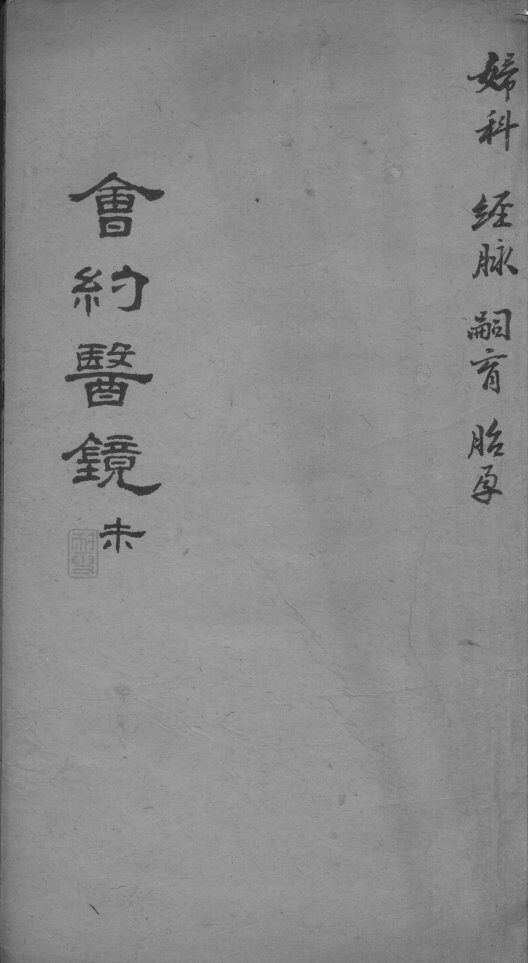 婦科 經脉 嗣育 胎孕
會約醫鏡 未